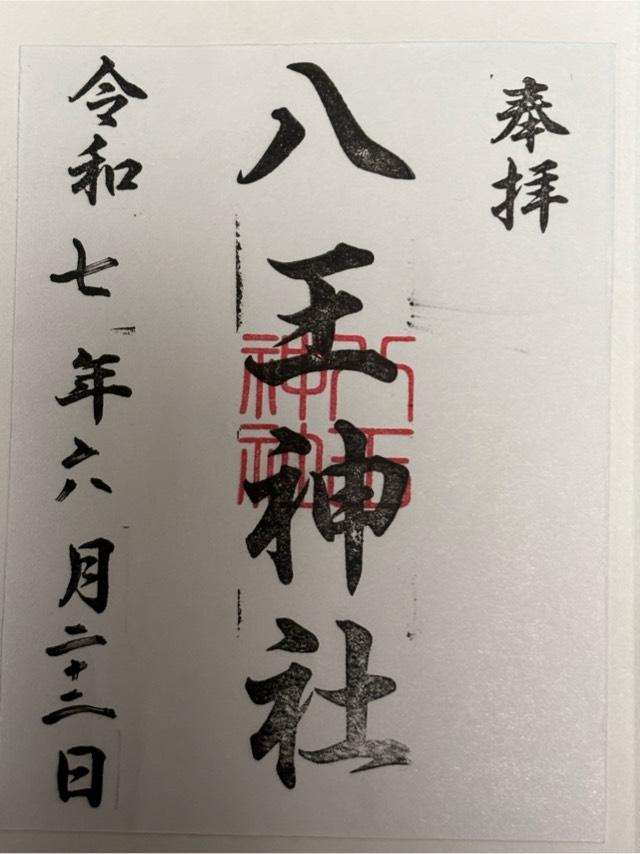 奉拝
八王神社
八王神社
令和七年六月二十二日